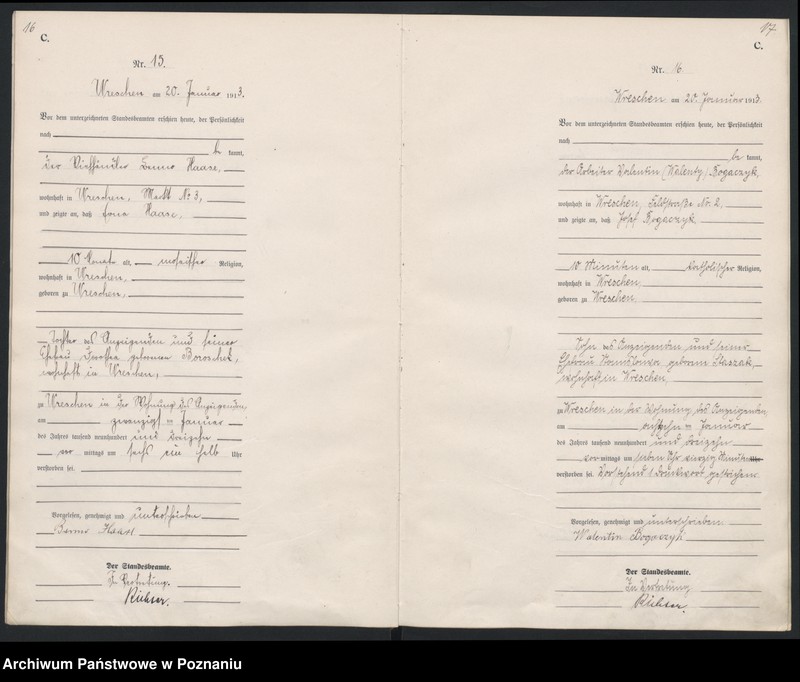 16
C.
Nr. 15.
Wreschen am 20. Januar 1913.
Vor dem unterzeichneten Standesbeamten erschien heute, der Persönlichkeit
nach
be kannt,
der Viehhändler Benno Haase,
wohnhaft in Wreschen, Markt No 3,
und zeigte an, daß Haase,
10 Monate alt, mosaischer Religion,
wohnhaft in Wreschen,
geboren zu Wreschen,
Tochter des Anzeigenden und seiner
Ehefrau Dorothea geborenen
wohnhaft in Wreschen,
zu Wreschen in der Wohnung des Anzeigenden
am zwanzigsten Januar
des Jahres tausend neunhundert und dreizehn
vor mittags um sechs ein halb Uhr
verstorben sei.
Vorgelesen, genehmigt und unterschrieben
Benno Haase
Der Standesbeamte.
In Vertretung.
Richter.
17
C.
Nr. 16
Wreschen am 20. Januar 1913.
Vor dem unterzeichneten Standesbeamten erschien heute, der Persönlichkeit
nach
be kannt,
der Arbeiter Valentin (Walenty) Bogaczyk,
wohnhaft in Wreschen, Feldstraße Nr. 2,
und zeigte an, daß Josef Bogaczyk
10 Minuten alt, katholischer Religion,
wohnhaft in Wreschen,
geboren zu Wreschen,
Sohn des Anzeigenden und seiner
Ehefrau geborene Staszak,
wohnhaft in Wreschen,
zu Wreschen in der Wohnung des Anzeigenden
am achtzehn ten Januar
des Jahres tausend neunhundert und dreizehn
vor mittags um sieben Uhr vierzig Minuten
verstorben sei. Vorstehend 1 Druckwort gestrichen.
Vorgelesen, genehmigt und unterschrieben
Walentin Bogaczyk
Der Standesbeamte.
In Vertretung
Richter.
Archiwum Państwowe w Poznaniu